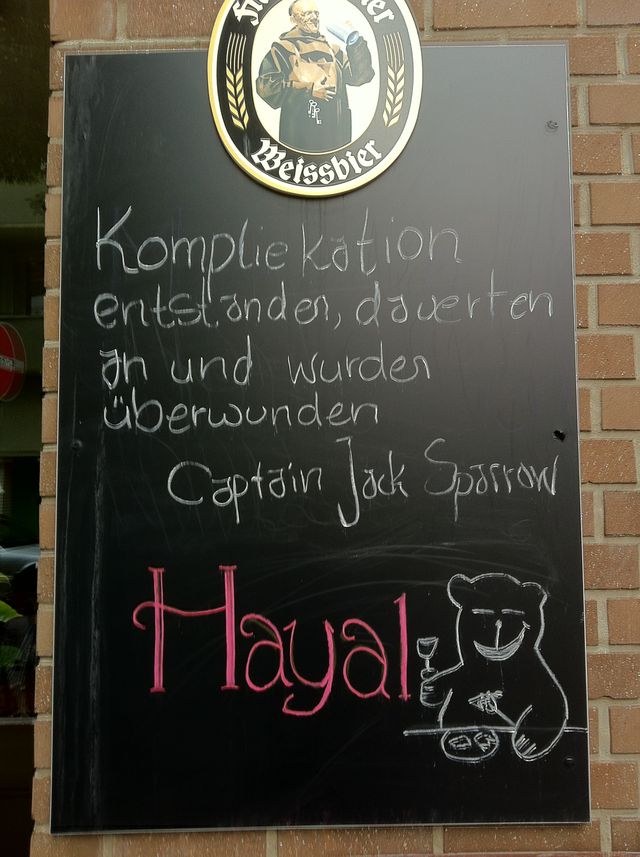 Weissbier
Kompliekation
entstanden, dauerten
an und wurden
überwunden
Captain Jack Sparrow
Hayal